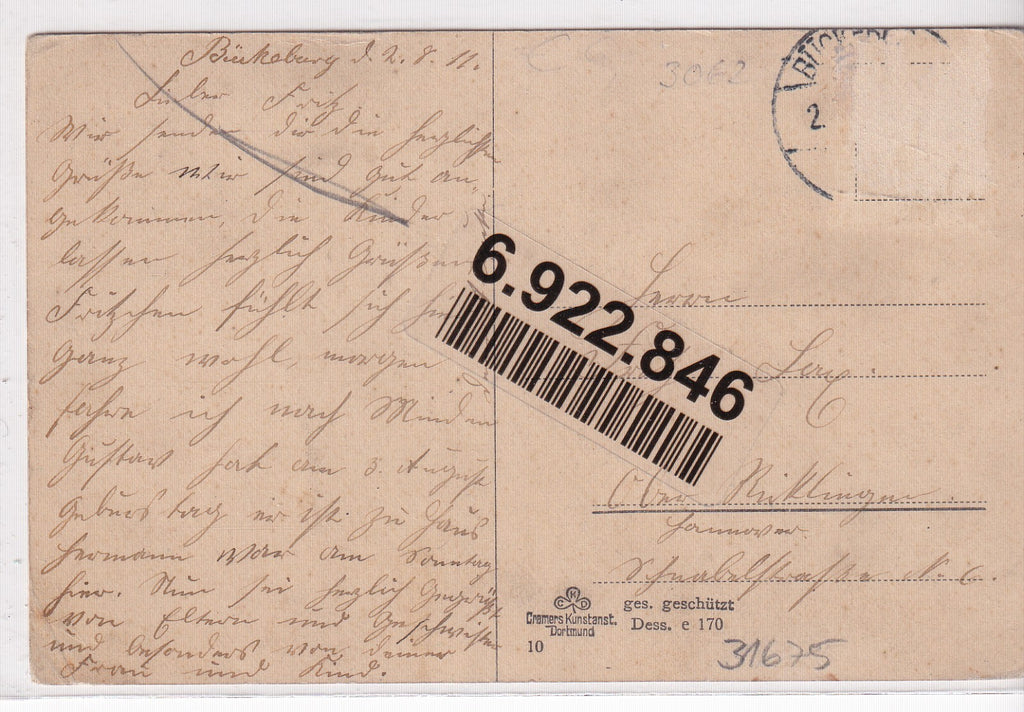 Bückeburg d. 2. 8. 11.
Lieber Fritz.
Wir senden dir die herzlichsten
Grüße wir sind gut an-
gekommen, die Kinder
lassen herzlich Grüßen
Fritzchen fühlt sich hier
ganz wohl, morgen
fahre ich nach Minden
Gustav hat am 3. August
Geburstag er ist zu Haus
Hermann war am Sonntag
hier. Nun sei herzlich Gegrüßt
von Eltern und Geschwister
und besonders von deiner
Frau und Kind.
3062
2.
6.922.846
Herrn
Ober Ricklingen.
Hannover
Schnabelstraße N. 6.
CKD
Cramers Kunstanst.
Dortmund
ges. geschützt
Dess. e 170
10
31675